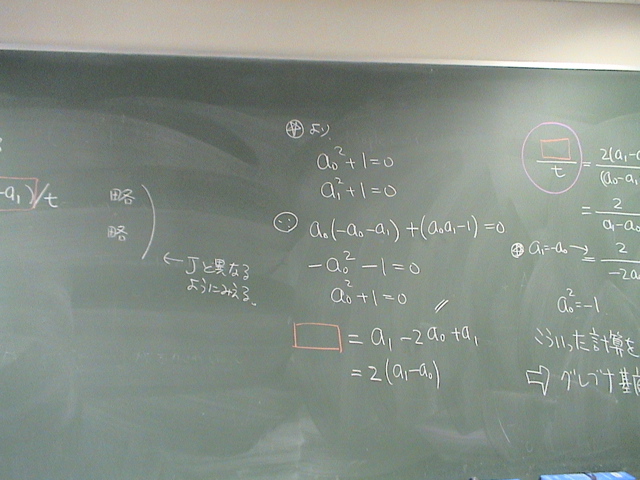 -a₁)/t
略
略
← Jと異なる
ようにみえる。
⊕より
a₀² + 1 = 0
a₁² + 1 = 0
∵ a₀(-a₀-a₁) + (a₀a₁-1) = 0
-a₀² - 1 = 0
a₀² + 1 = 0
□ = a₁ - 2a₀ + a₁
= 2(a₁-a₀)
□/t = 2(a₁-a / (a₀-a₁
= 2/(a₁-a₀
⊕ a₁=-a₀ → = 2/(-2a
a₀² = -1
こういった計算を
⇨ グレブナ基